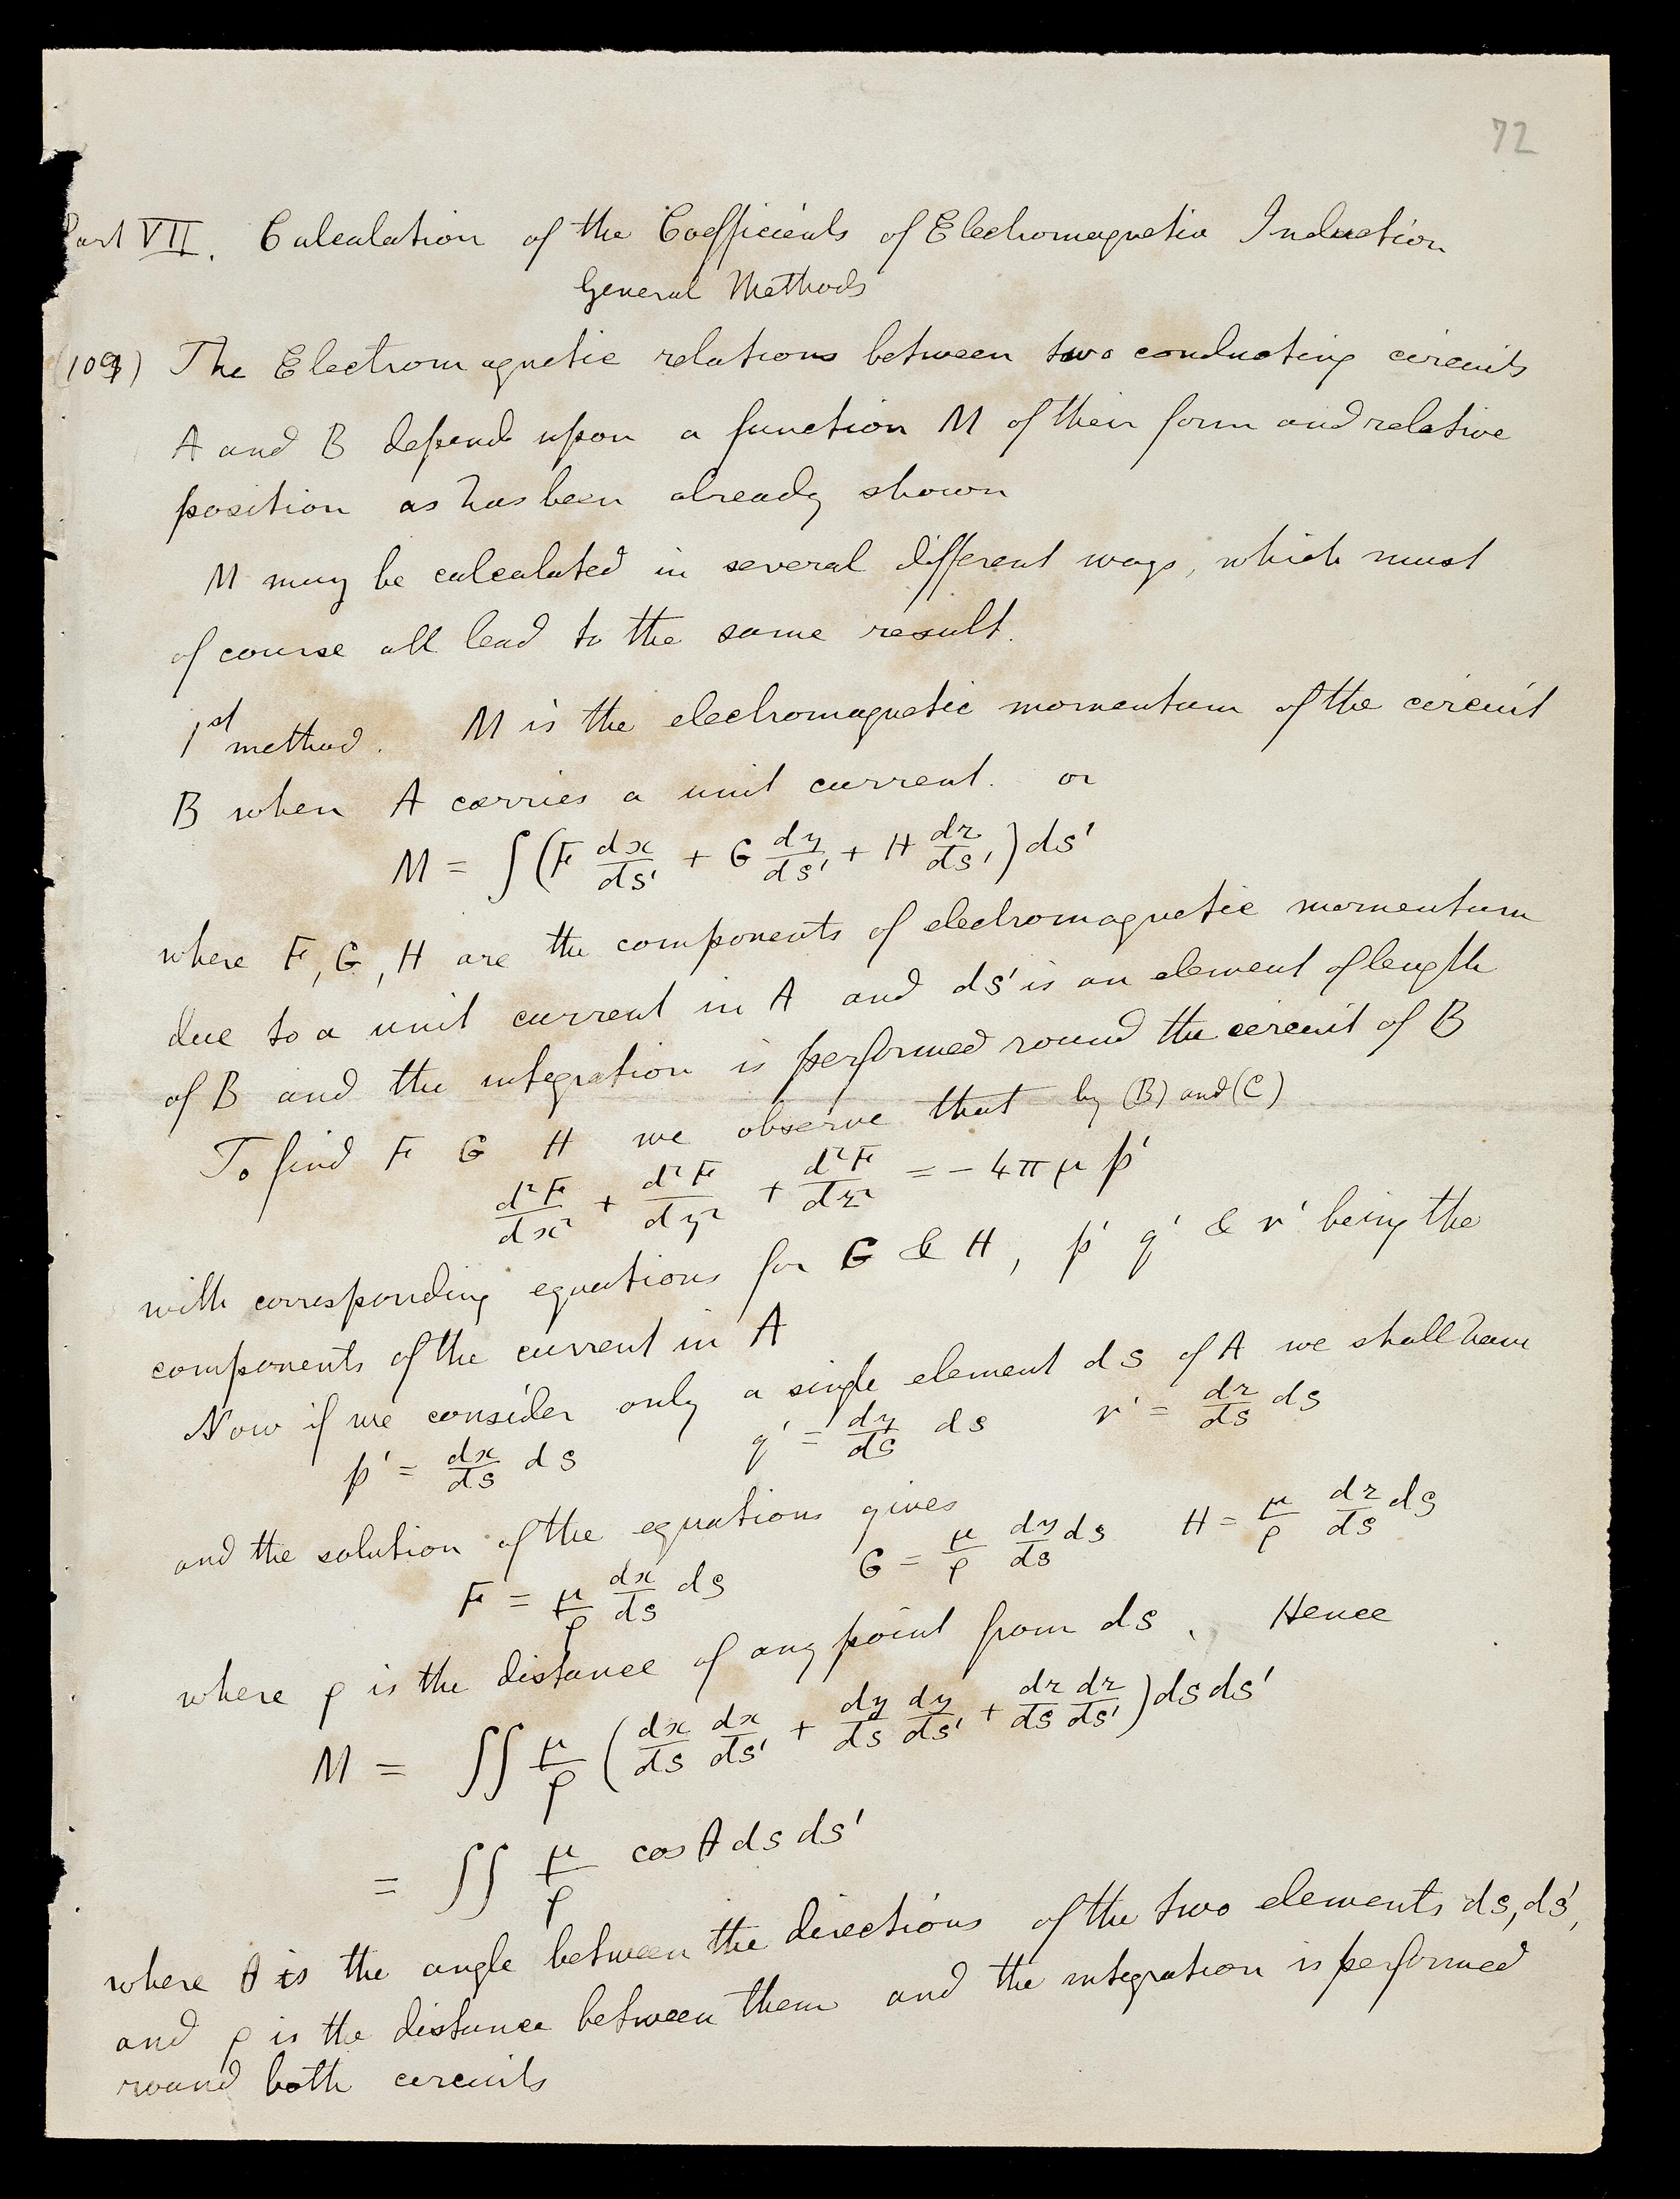 72
Part VII. Calculation of the Coefficients of Electromagnetic Induction
General Methods
(109) The Electromagnetic relations between two conducting circuits
A and B depend upon a function M of their form and relative
position as has been already shown
M may be calculated in several different ways, which must
of course all lead to the same result.
1st method. M is the electromagnetic momentum of the circuit
B when A carries a unit current. or
M = ∫(F dx/ds' + G dy/ds' + H dz/ds') ds'
where F, G, H are the components of electromagnetic momentum
due to a unit current in A and ds' is an element of length
of B and the integration is performed round the circuit of B
To find F G H we observe that by (B) and (C)
d²F/dx² + d²F/dy² + d²F/dz² = - 4πμ p'
with corresponding equations for G & H, p' q' & r' being the
components of the current in A
Now if we consider only a single element ds of A we shall have
p' = dx/ds ds q' = dy/ds ds r' = dz/ds ds
and the solution of the equations gives
F = μ/ρ dx/ds ds G = μ/ρ dy/ds ds H = μ/ρ dz/ds ds
where ρ is the distance of any point from ds. Hence
M = ∫∫ μ/ρ (dx/ds dx/ds' + dy/ds dy/ds' + dz/ds dz/ds') ds ds'
= ∫∫ μ/ρ cos θ ds ds'
where θ is the angle between the directions of the two elements ds, ds',
and ρ is the distance between them and the integration is performed
round both circuits